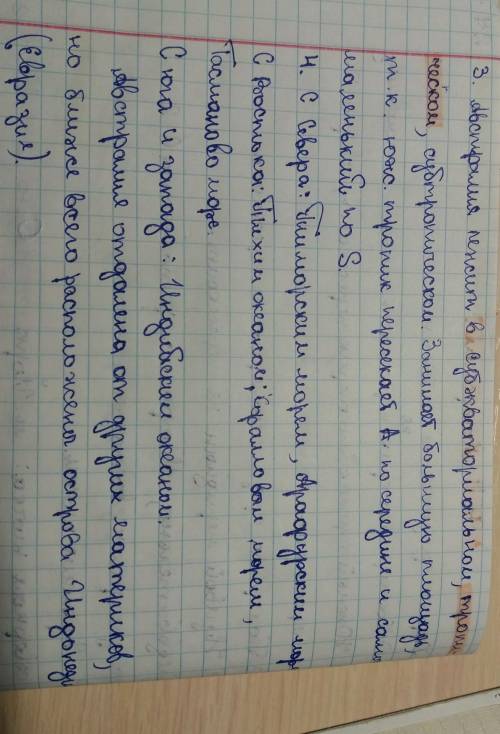 3. Австралия лежит в субэкваториальном, тропи
ческом, субтропическом. Занимает большую площадь,
т.к. южн. тропик пересекает А. по середине и сам
маленький по S.
4. С севера: Тиморским морем, Арафурским мор
С Востока: Тихим океаном; Коралловым морем,
Тасманово море.
С юга и запада: Индийским океаном.
Австралия отдалена от других материков,
но ближе всего расположены острова Индонез
(Евразия).